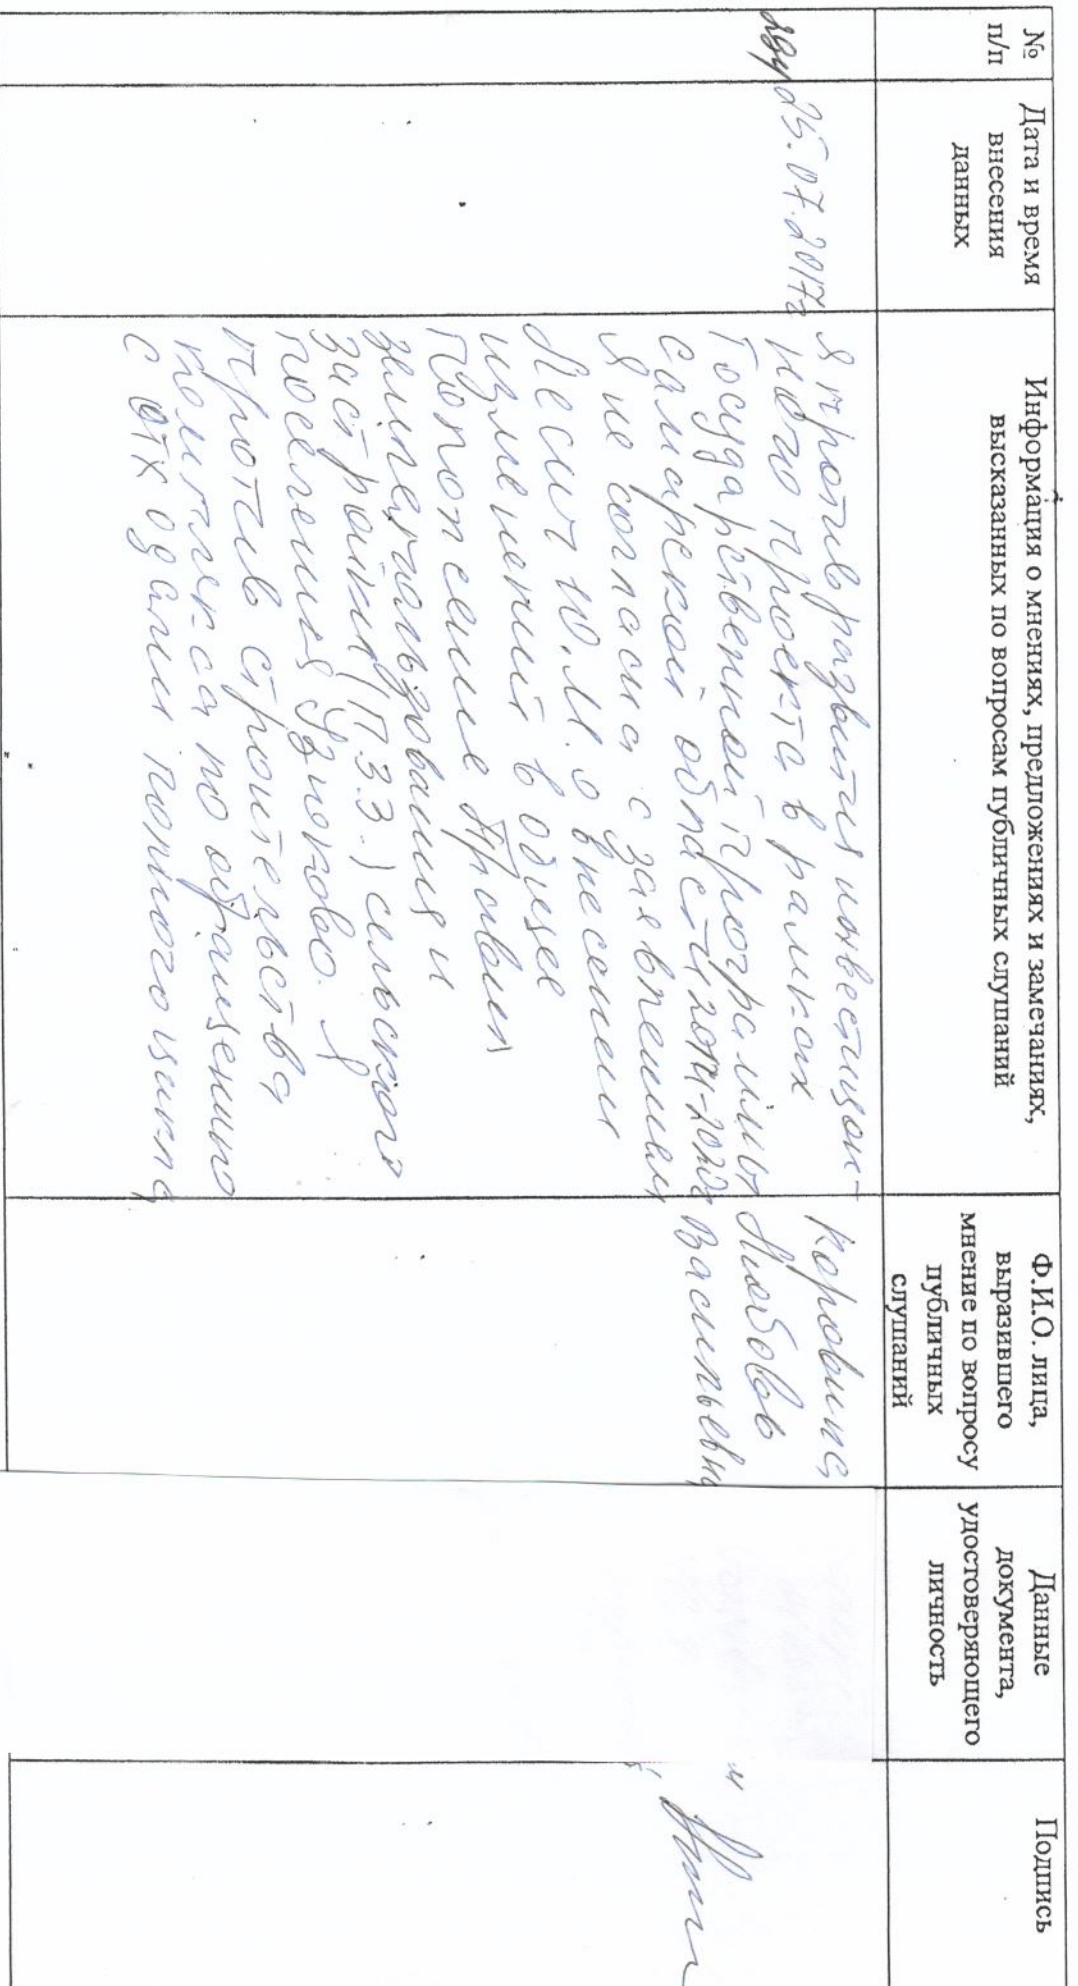 №
п/п
Дата и время
внесения
данных
Информация о мнениях, предложениях и замечаниях,
высказанных по вопросам публичных слушаний
Ф.И.О. лица,
выразившего
мнение по вопросу
публичных
слушаний
Данные
документа,
удостоверяющего
личность
Подпись
25.07.2017г
Я против развития инвестицон-
ного проекта в рамках
Государственной программы
самарской области 2014-2020г
Я не согласна с заявлением
Лесич Ю.М. о внесении
изменений в общее
Положение Правил
землепользования и
застройки (П.З.З.) сельского
поселения Узюково. Я
против строительства
комплекса по обращению
с отходами полного цикла
Коровина
Любовь
Васильевна